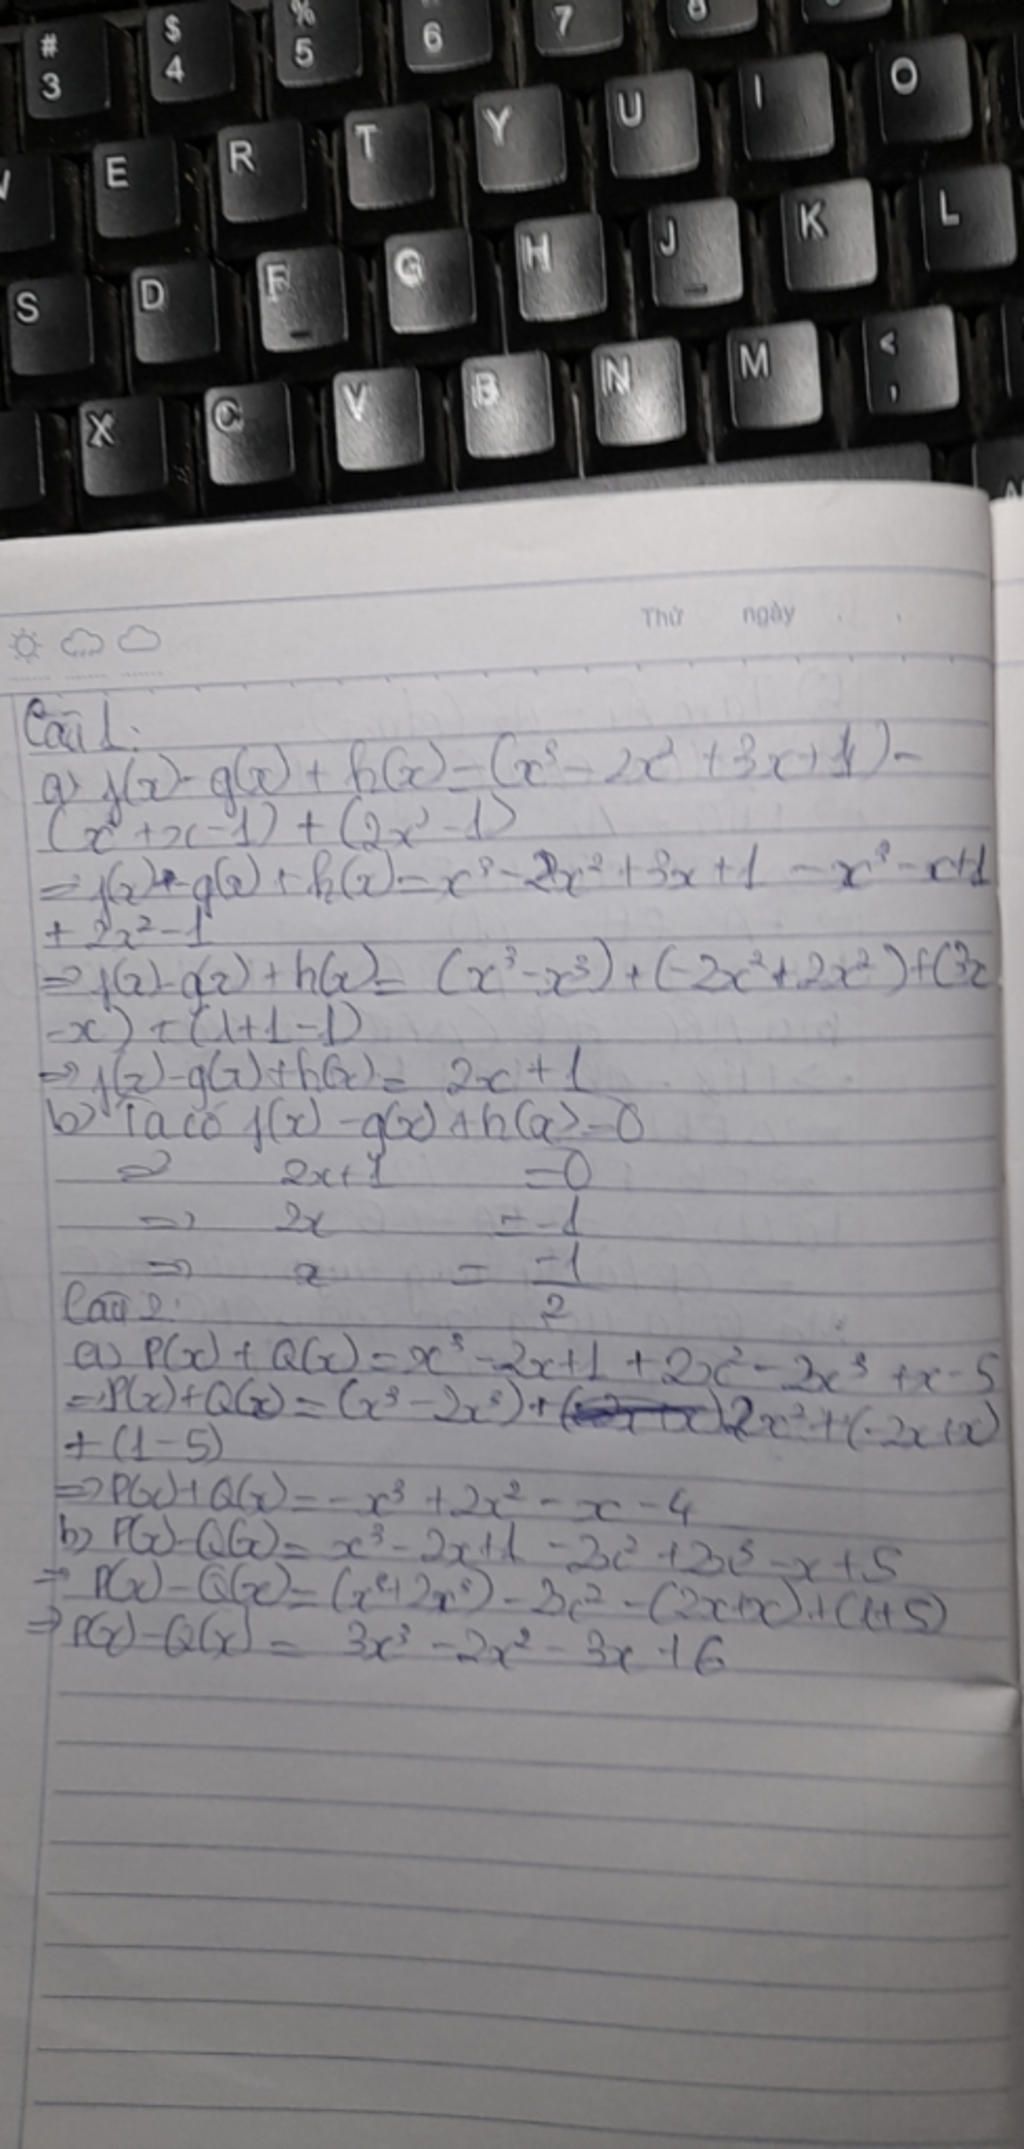 # $ % 6 7 8
3 4 5
E R T Y U I O
S D F G H J K L
X C V B N M < ,
Thứ ngày
Câu 1:
a) f(x)-g(x)+h(x)=(x³-2x²+3x+1)-
(x³+x-1)+(2x²-1)
=>f(x)-g(x)+h(x)=x³-2x²+3x+1-x³-x+1
+2x²-1
=>f(x)-g(x)+h(x)=(x³-x³)+(-2x²+2x²)+(3x
-x)+(1+1-1)
=>f(x)-g(x)+h(x)=2x+1
b) Ta có f(x)-g(x)+h(x)=0
=> 2x+1 =0
=> 2x =-1
=> x = -1/2
Câu 2:
a) P(x)+Q(x)=x³-2x+1+2x²-2x³+x-5
=>P(x)+Q(x)=(x³-2x³)+2x²+(-2x+x)
+(1-5)
=>P(x)+Q(x)=-x³+2x²-x-4
b) P(x)-Q(x)=x³-2x+1-2x²+2x³-x+5
=> P(x)-Q(x)=(x³+2x³)-2x²-(2x+x)+(1+5)
=> P(x)-Q(x)=3x³-2x²-3x+6